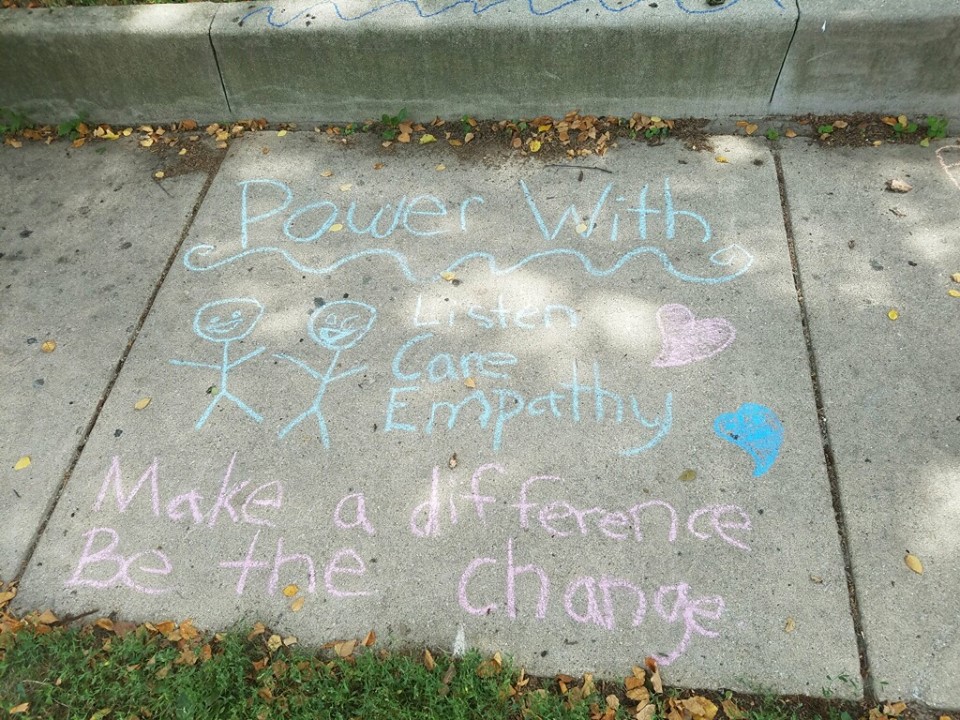 Power With
Listen
Care
Empathy
Make a difference
Be the change